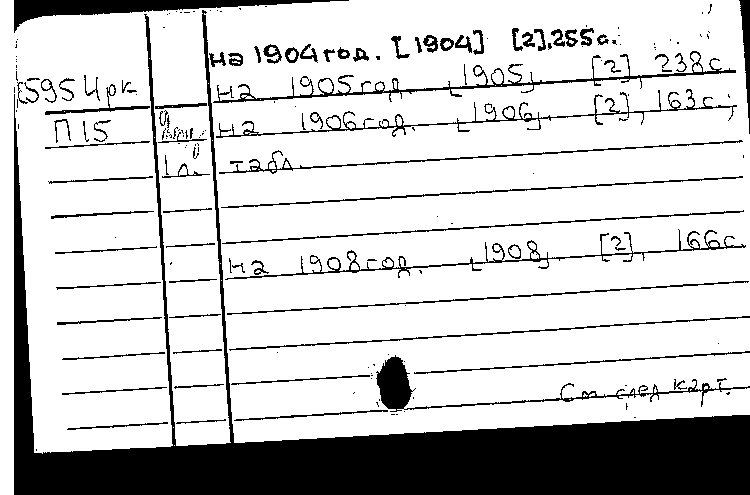 на 1904 год. [1904] [2], 255 с.
595 Ирк на 1905 год. [1905]. [2], 238 с.
П 15 на 1906 год. [1906]. [2], 163 с.,
1 л. табл.
на 1908 год. [1908]. [2], 166 с.
См. след карт.